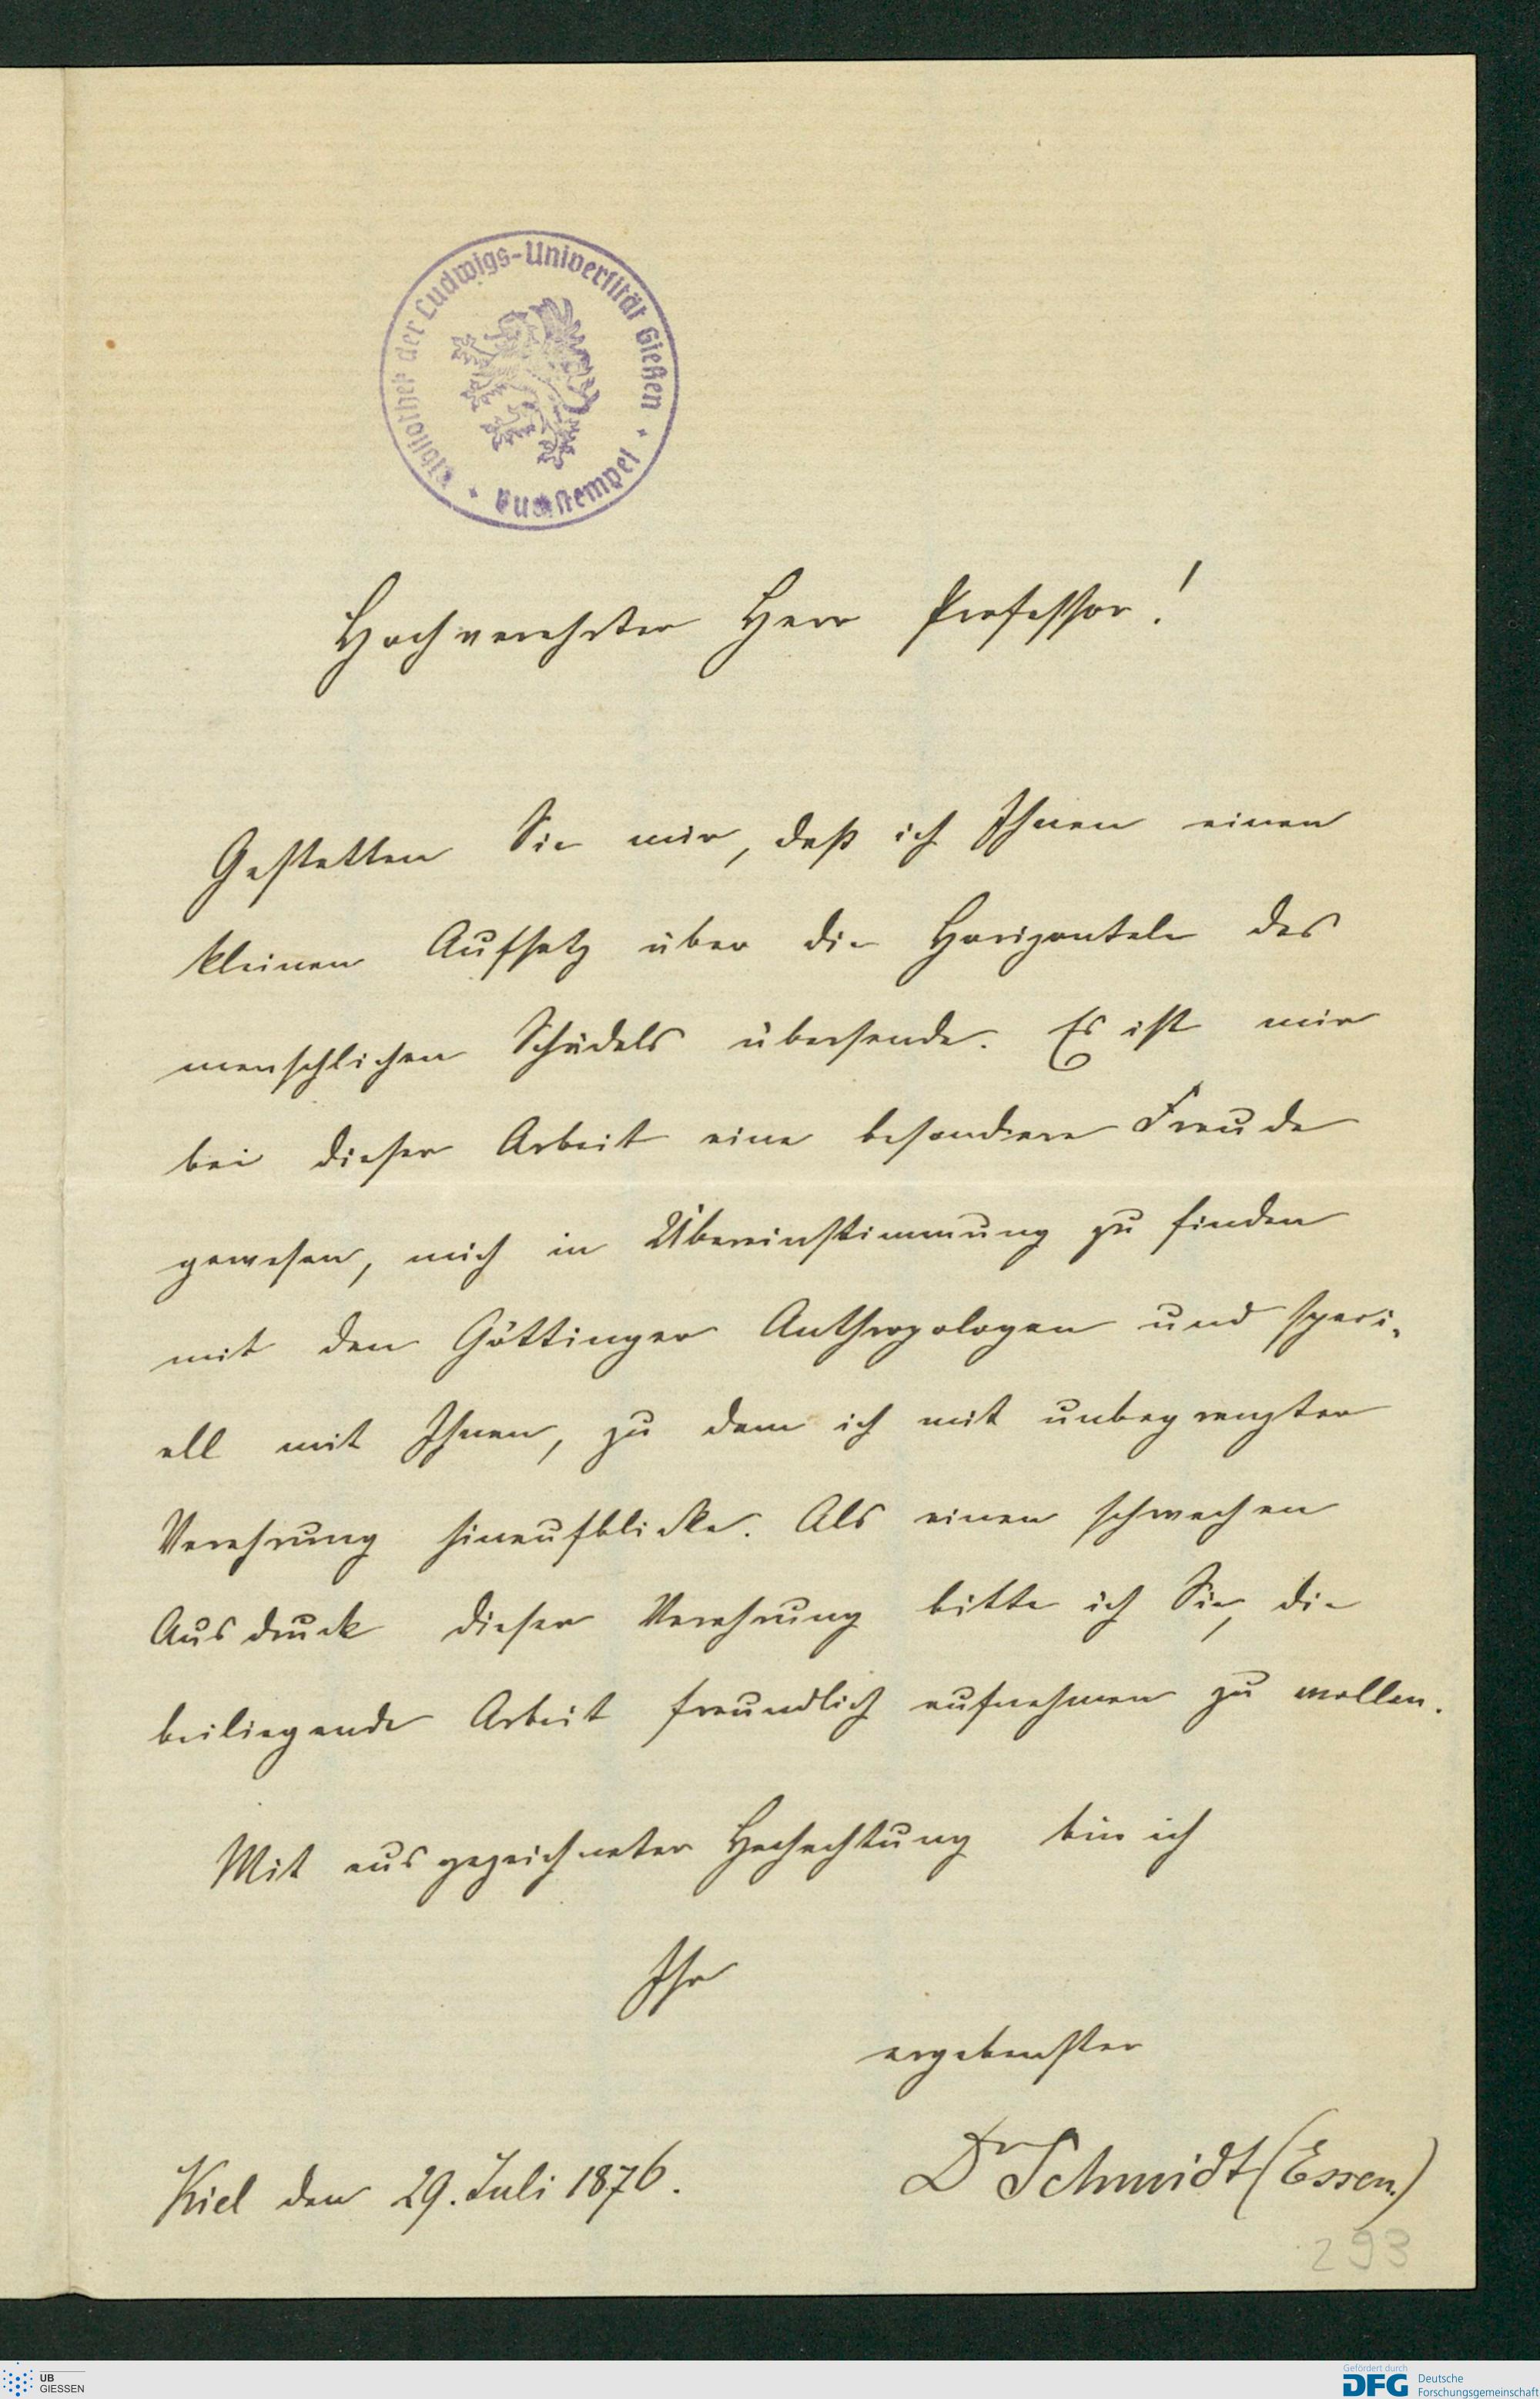 Bibliothek der Ludwigs-Universität Gießen
Hochverehrter Herr Professor!
Gestatten Sie mir, daß ich Ihnen einen
kleinen Aufsatz über die Horizontale des
menschlichen Schädels übersende. Es ist mir
bei dieser Arbeit eine besondere Freude
gewesen, mich in Übereinstimmung zu finden
mit den Göttinger Anthropologen und speci-
ell mit Ihnen, zu dem ich mit unbegrenzter
Verehrung hinaufblicke. Als einen schwachen
Ausdruck dieser Verehrung bitte ich Sie, die
beiliegende Arbeit freundlich aufnehmen zu wollen.
Mit ausgezeichneter Hochachtung bin ich
Ihr
ergebenster
Dr Schmidt (Essen.)
Kiel den 29. Juli 1876.
293
UB
GIESSEN
Gefördert durch
DFG Deutsche
Forschungsgemeinschaft